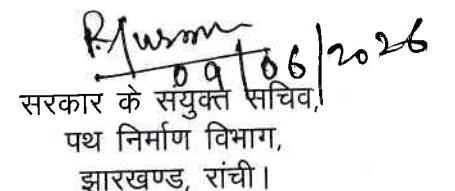 09/06/2026
सरकार के संयुक्त सचिव,
पथ निर्माण विभाग,
झारखण्ड, रांची।